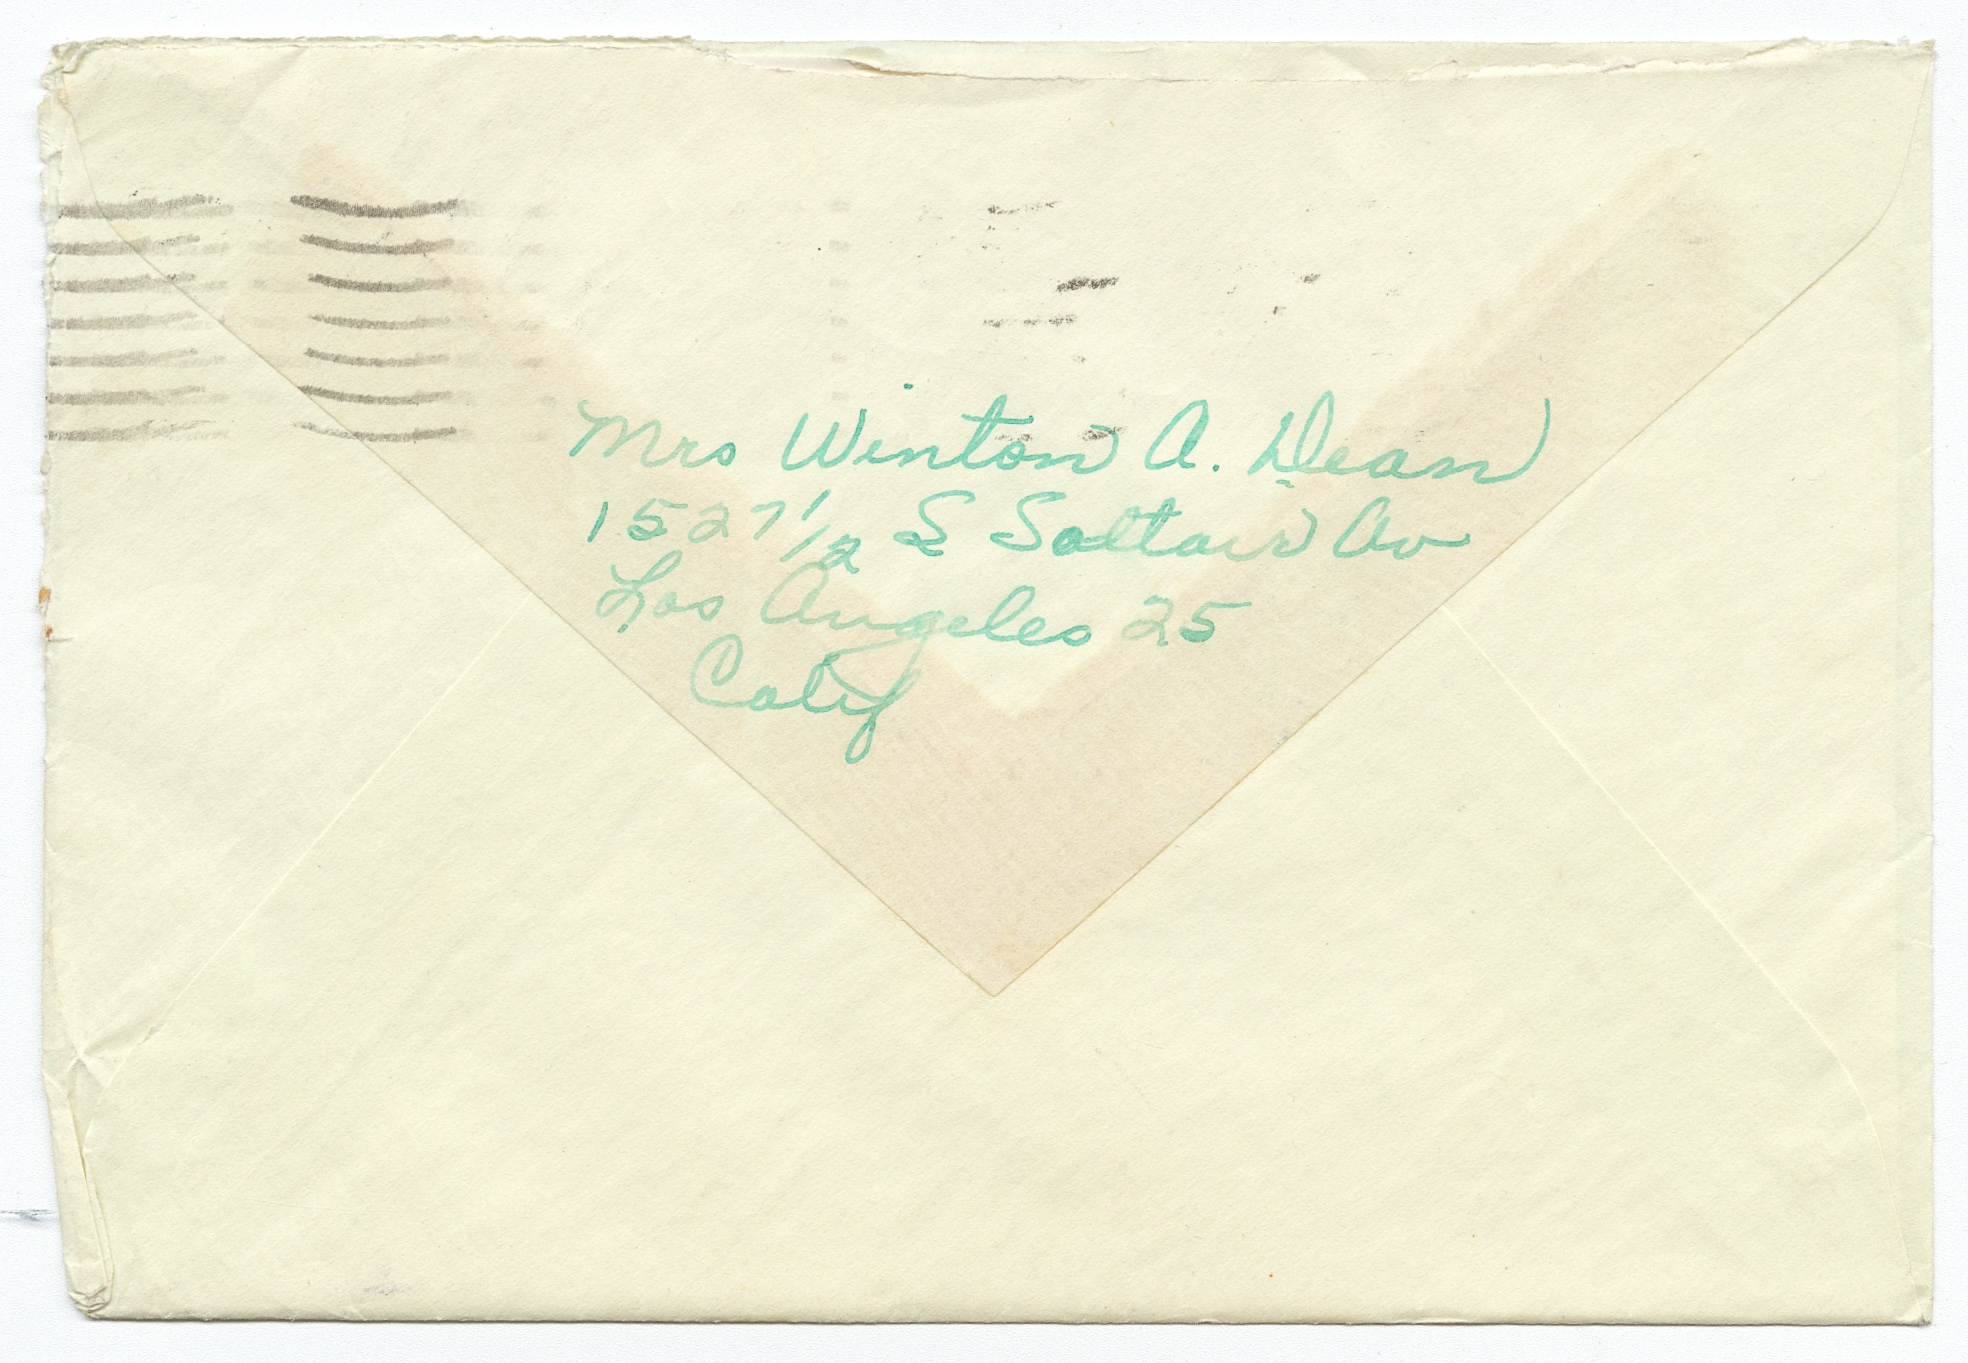 Mrs Winton A. Dean
1527 1/2 S Saltair Av
Los Angeles 25
Calif